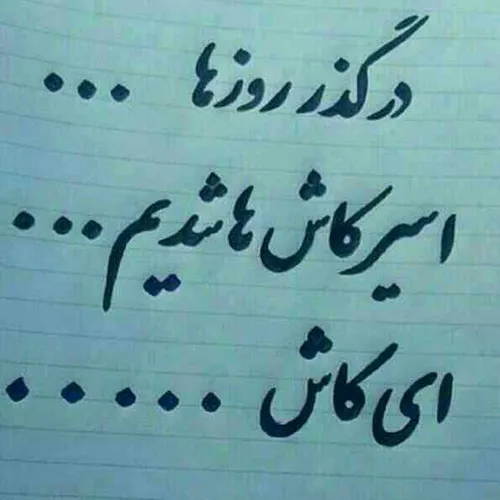 در گذر روزها ...
اسیر کاش ها شدیم ...
ای کاش .....